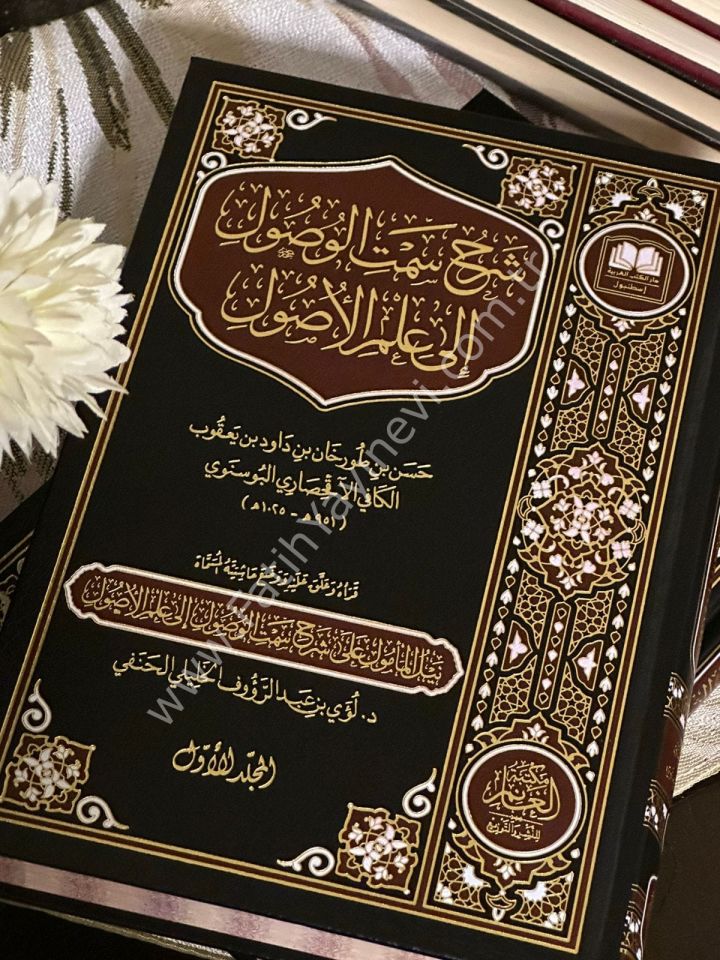 شَرْحُ سَمْتِ الوُصُولِ
إِلَى عِلْمِ الأُصُولِ
حَسَن بن طُورخَان بن دَاود بن يَعقُوب
الكَافي الآقحِصَاري البُوسنَوي
(٩٥١هـ - ١٠٢٥هـ)
قَرَأهُ وَعَلَّقَ عَلَيْهِ وَوَضَعَ حَاشِيَتَهُ المُسَمَّاة
نَيْلُ المَأمُولِ عَلَى شَرْحِ سَمْتِ الوُصُولِ إِلَى عِلْمِ الأُصُولِ
د. لُؤَي بن عَبد الرَّؤُوف الخَلِيلي الحَنَفي
المُجَلَّد الأَوَّل
دار الكتب العربية
إسطنبول
مكتبة
الغانم
للنشر والتوزيع
www.FatihYayinevi.com.tr